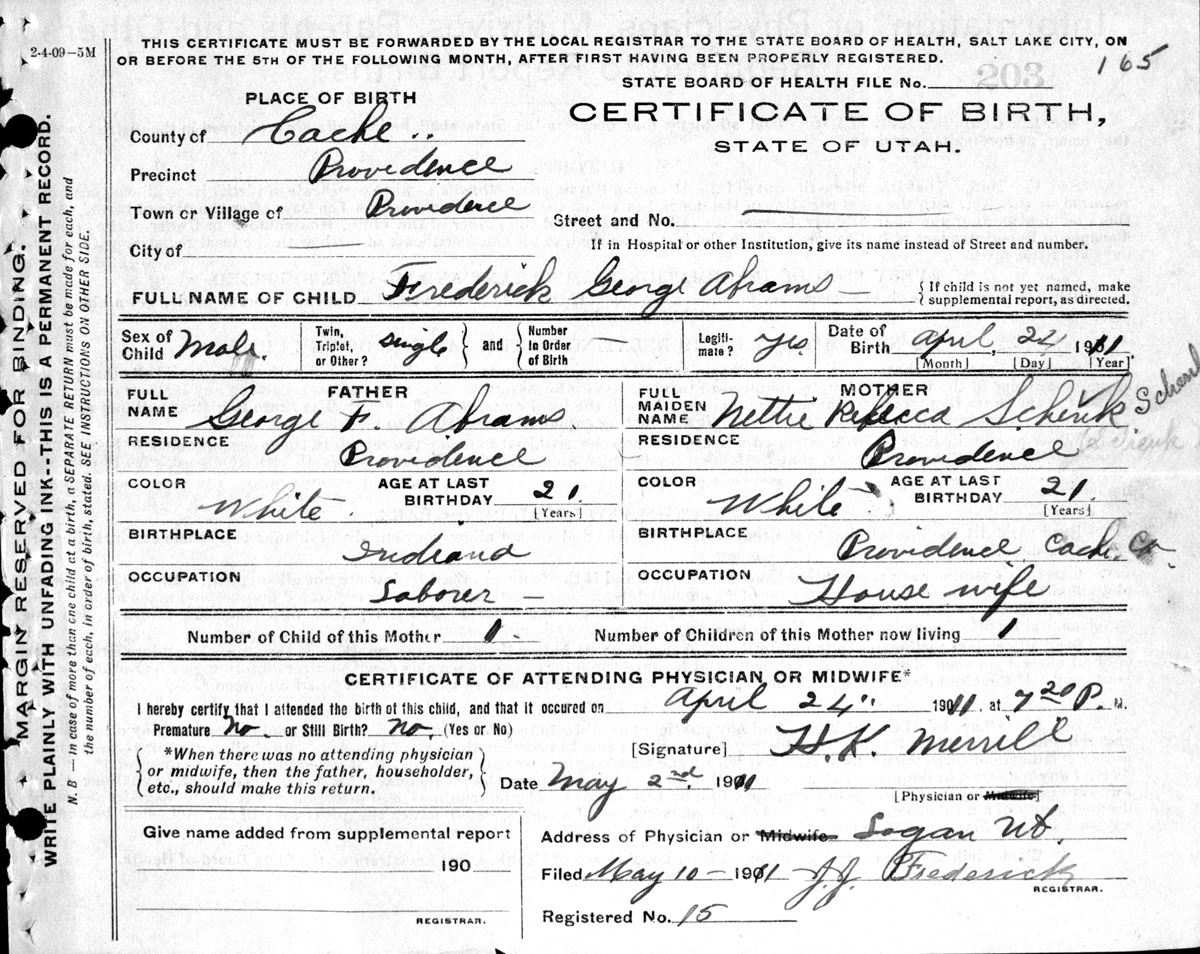 2-4-09-5M
THIS CERTIFICATE MUST BE FORWARDED BY THE LOCAL REGISTRAR TO THE STATE BOARD OF HEALTH, SALT LAKE CITY, ON
OR BEFORE THE 5TH OF THE FOLLOWING MONTH, AFTER FIRST HAVING BEEN PROPERLY REGISTERED.
165
203
STATE BOARD OF HEALTH FILE No.
PLACE OF BIRTH
CERTIFICATE OF BIRTH,
STATE OF UTAH.
County of Cache
Precinct Providence
Town or Village of Providence
Street and No. —
City of
If in Hospital or other Institution, give its name instead of Street and number.
FULL NAME OF CHILD Frederick George Abrams { If child is not yet named, make
supplemental report, as directed.
Sex of Child Male. Twin, Triplet, or Other? Single } and { Number in Order of Birth Legiti- mate? Yes. Date of Birth April, 24 1911
[Month] [Day] [Year]
FATHER
FULL NAME George F. Abrams
RESIDENCE Providence
COLOR White AGE AT LAST BIRTHDAY 21
[Years]
BIRTHPLACE Indiana
OCCUPATION Laborer —
MOTHER
FULL MAIDEN NAME Nettie Rebecca Schenk Schenk
RESIDENCE Providence
COLOR White AGE AT LAST BIRTHDAY 21.
[Years]
BIRTHPLACE Providence Cache Co.
OCCUPATION House wife
Number of Child of this Mother 1 - Number of Children of this Mother now living 1
CERTIFICATE OF ATTENDING PHYSICIAN OR MIDWIFE*
I hereby certify that I attended the birth of this child, and that it occured on April 24" 1911. at 7 20 P. M.
Premature No. or Still Birth? No. (Yes or No)
*When there was no attending physician
or midwife, then the father, householder,
etc., should make this return.
[Signature] H.K. Merrill
Date May 2nd. 1911
[Physician or Midwife]
Give name added from supplemental report
190
REGISTRAR.
Address of Physician or Midwife Logan Ut.
Filed May 10 - 1911 J.J. Frederick
REGISTRAR.
Registered No. 15
MARGIN RESERVED FOR BINDING.
WRITE PLAINLY WITH UNFADING INK--THIS IS A PERMANENT RECORD.
N. B —In case of more than one child at a birth, a SEPARATE RETURN must be made for each, and
the number of each, in order of birth, stated. SEE INSTRUCTIONS ON OTHER SIDE.